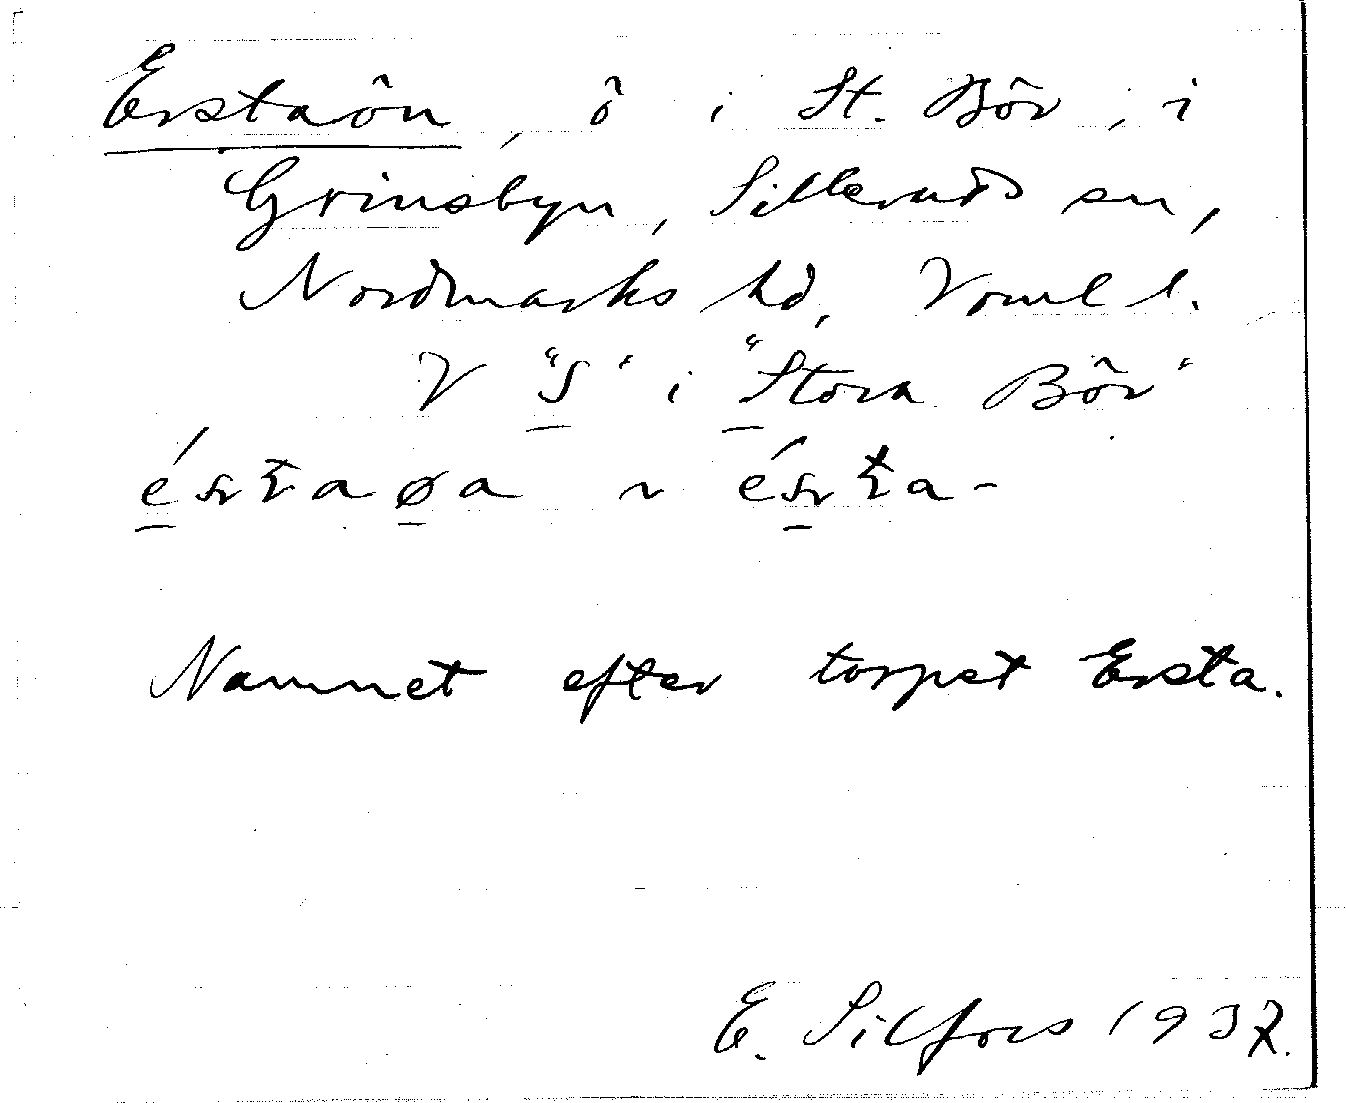 Erstaön, ö i St. Bör, i
Grinsbyn, Silleruds sn,
Nordmarks hd, Vrml l.
V "S" i "Stora Bör"
Namnet efter torpet Ersta.
E. Silfors 1937.